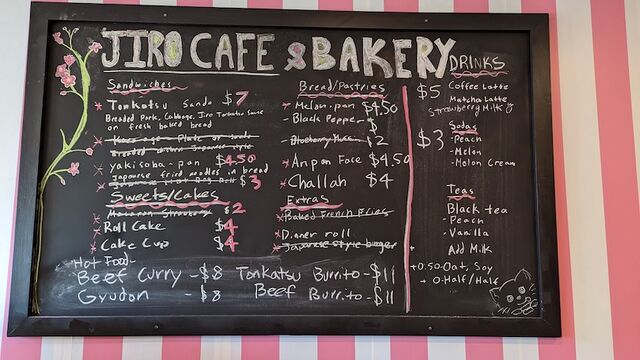 JIRO CAFE & BAKERY
Sandwiches
* Tonkatsu Sando $7
Breaded Pork, Cabbage, Jiro Tonkatsu Sauce
on fresh baked bread
* yakisoba-pan $4.50
Japanese fried noodles in bread
$3
Sweets/Cakes
Macaron Strawberry $2
* Roll Cake $4
* Cake Cup $4
Bread/Pastries
- Melon.pan $4.50
- Black Pepper - $
Blueberry $2
* An pan Face $4.50
* Challah $4
Extras
* Baked French Fries
* Dinner roll
* Japanese style burger
DRINKS
$5 Coffee Latte
Matcha Latte
Strawberry Milk
Sodas
$3 - Peach
- Melon
- Melon Cream
Teas
Black tea
- Peach
- Vanilla
Add Milk
+0.50-Oat, Soy
+ 0-Half/Half
Hot Food-
Beef Curry - $8 Tonkatsu Burrito - $11
Gyudon - $8 Beef Burrito - $11